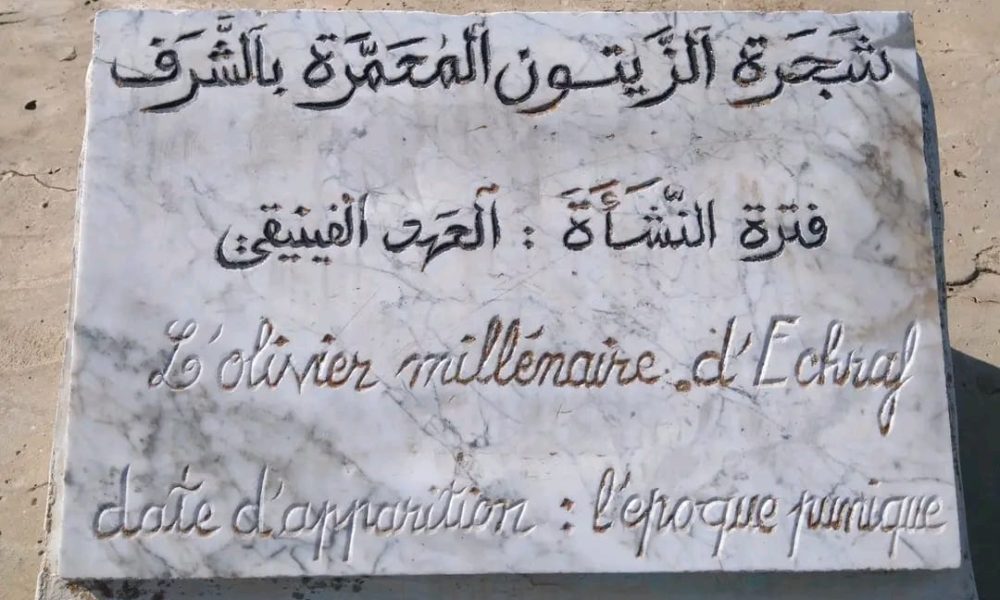 شَجَرَة الزَّيتون المُعَمَّرة بالشَّرَف
فترة النَّشَأَةَ : العهد الفينيقي
L'olivier millénaire d'Echraf
date d'apparition : l'époque punique